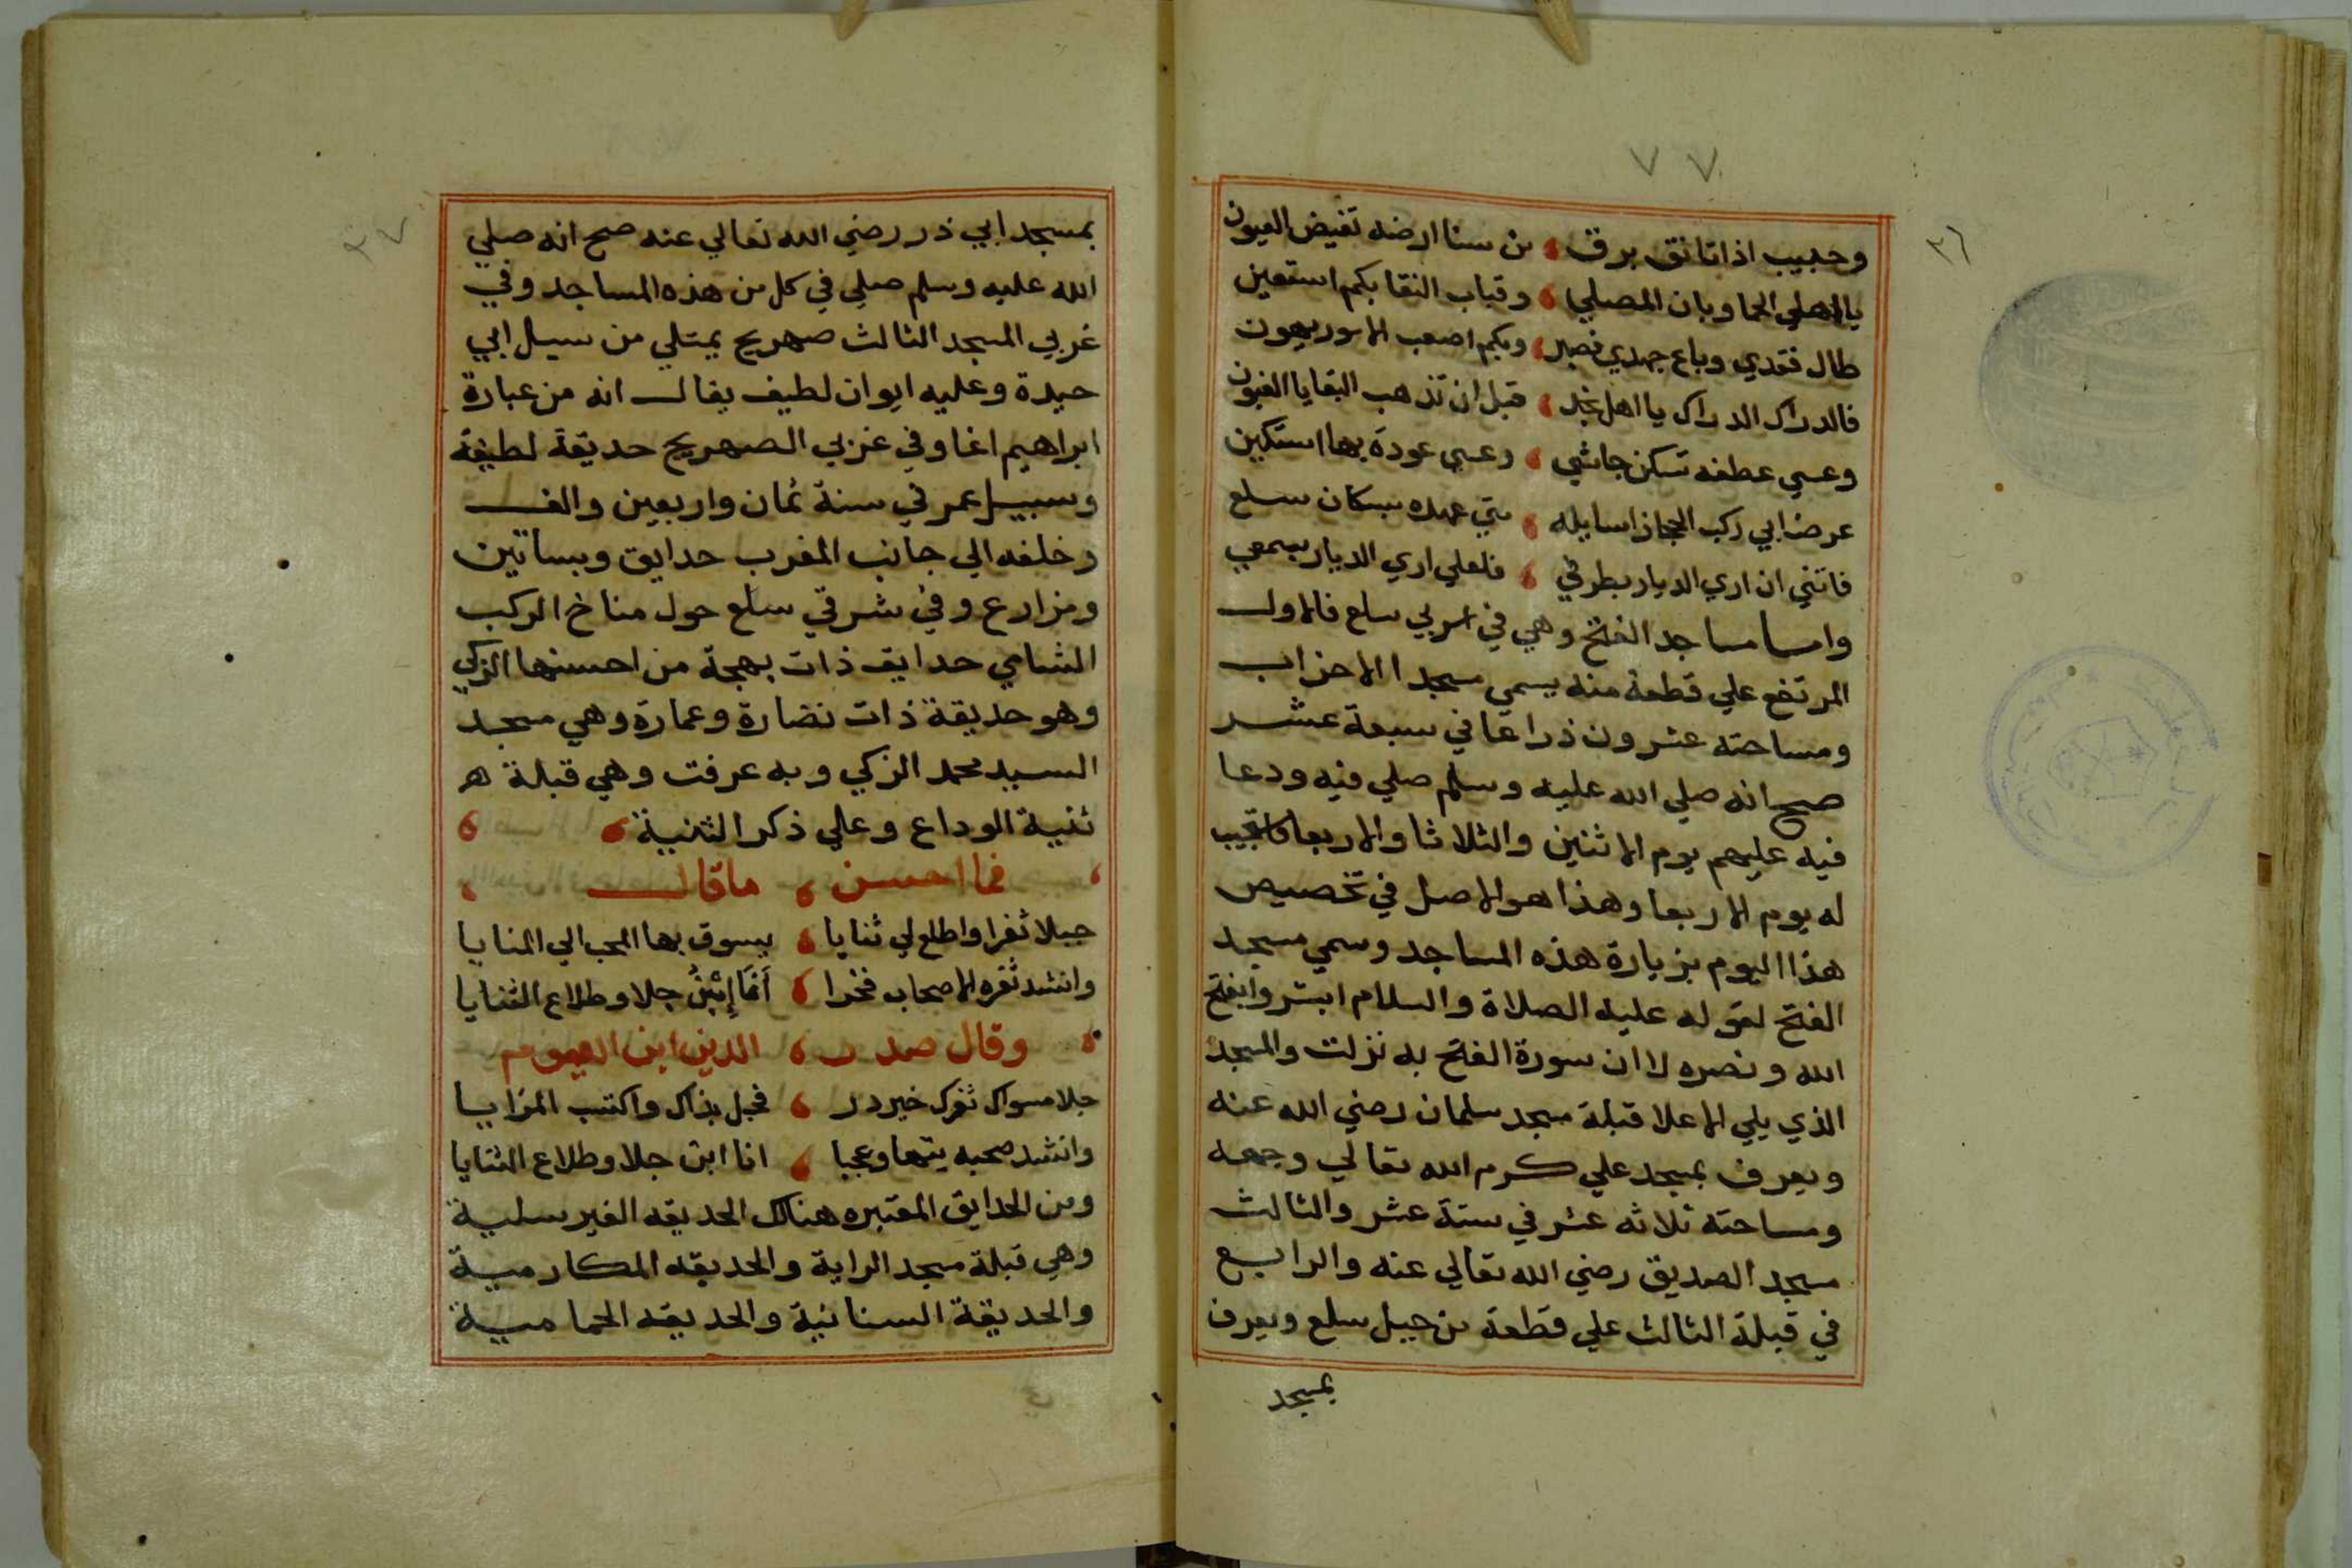 ٧٧
٣٦
وحبيب اذا تانق برق ، من سنا ارضه تفيض العيون
يالاهلي الحما وبان المصلي ، وقباب النقا بكم استعين
طال فقدي وباع جهدي قصير ، وبكم اصعب الامور يهون
فالدراك الدراك يا اهل نجد ، قبل ان تذهب البقايا الغبون
وعسي عطفه تسكن جاشي ، وعسي عودة بها استكين
عرضا بي ركب الحجاز اسايله ، متي عهده بسكان سلع
فاتني ان اري الديار بطرفي ، فلعلي اري الديار بسمعي
واما مساجد الفتح وهي في غربي سلع فالاول
المرتفع علي قطعة منه يسمي مسجد الاحزاب
ومساحته عشرون ذراعا في سبعة عشر
صح انه صلي الله عليه وسلم صلي فيه ودعا
فيه عليهم يوم الاثنين والثلاثا والاربعا فاستجيب
له يوم الاربعا وهذا هو الاصل في تخصيص
هذا اليوم بزيارة هذه المساجد وسمي مسجد
الفتح لقوله عليه الصلاة والسلام ابشروا بفتح
الله ونصره لا ان سورة الفتح به نزلت والمسجد
الذي يلي الاعلا قبلة مسجد سلمان رضي الله عنه
ويعرف بمسجد علي كرم الله تعالي وجهه
ومساحته ثلاثه عشر في ستة عشر والثالث
مسجد الصديق رضي الله تعالي عنه والرابع
في قبلة الثالث علي قطعة من جبل سلع ويعرف
بمسجد
٣٧
بمسجد ابي ذر رضي الله تعالي عنه صح انه صلي
الله عليه وسلم صلي في كل من هذه المساجد وفي
غربي المسجد الثالث صهريج يمتلي من سيل ابي
حيدة وعليه ايوان لطيف يقال انه من عبارة
ابراهيم اغا وفي غربي الصهريج حديقة لطيفة
وسبيل عمر في سنة ثمان واربعين والف
وخلفه الي جانب المغرب حدايق وبساتين
ومزارع وفي شرقي سلع حول مناخ الركب
الشامي حدايق ذات بهجة من احسنها الزكي
وهو حديقة ذات نضارة وعمارة وهي مسجد
السيد محمد الزكي وبه عرفت وهي قبلة هر
ثنية الوداع وعلي ذكر الثنية ،
فما احسن ، ماقال
جلا ثغرا واطلع لي ثنايا ، يسوق بها المحب الي المنايا
وانشد ثغره الاصحاب فخرا ، أنا إبْنُ جلا وطلاع الثنايا
وقال صدر ، الدين ابن
جلا مسواك ثغرك خير در ، فجل بذاك واكتسب المزايا
وانشد صحبه يتها وعجبا ، انا ابن جلا وطلاع الثنايا
ومن الحدايق المعتبره هناك الحديقه الفيرسلية
وهي قبلة مسجد الراية والحديقه المكارمية
والحديقة السنانية والحديقه الحمامية